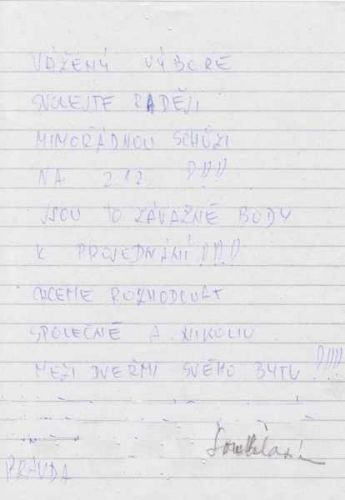 VÁŽENÝ VÝBORE
SVOLEJTE RADĚJI
MIMOŘÁDNOU SCHŮZI
NA 2.12. !!!!
JSOU TO ZÁVAŽNÉ BODY
K PROJEDNÁNÍ !!!!
CHCEME ROZHODOVAT
SPOLEČNĚ A NIKOLIV
MEZI DVEŘMI SVÉHO BYTU !!!!!
Souhlasím
PRAVDA